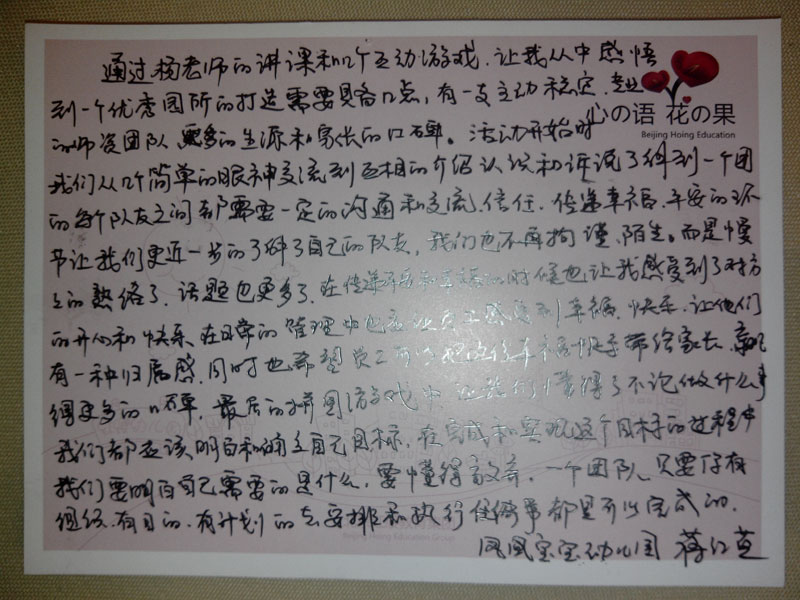 通过杨老师的讲课和几个互动游戏,让我从中感悟
到一个优秀园所的打造需要具备几点,有一支主动、稳定、专业
的师资团队 更多的生源和家长的口碑。活动开始时
心の语 花の果
Beijing Hoing Education
我们从几个简单的眼神交流到互相的介绍认识和诉说了解到一个团
的每个队友之间都需要一定的沟通和交流、信任、传递幸福、平安的环
节让我们更近一步的了解了自己的队友,我们也不再拘谨、陌生。而是慢
之的熟络了,话题也更多了,在传递平安和幸福的时候也让我感受到了对方
的开心和快乐,在日常的管理中也应让员工感受到幸福、快乐,让他们
有一种归属感,同时也希望员工可以把这份幸福快乐带给家长,赢
得更多的口碑,最后的拼图游戏中让我们懂得了不论做什么事
我们都应该明白和确立自己目标,在完成和实现这个目标的过程中
我们要明白自己需要的是什么,要懂得 一个团队、只要你有
组织、有目的、有计划的去安排和执行 事都是可以完成的.
Beijing Hoing Education Group
凤凰宝宝幼儿园 蒋红